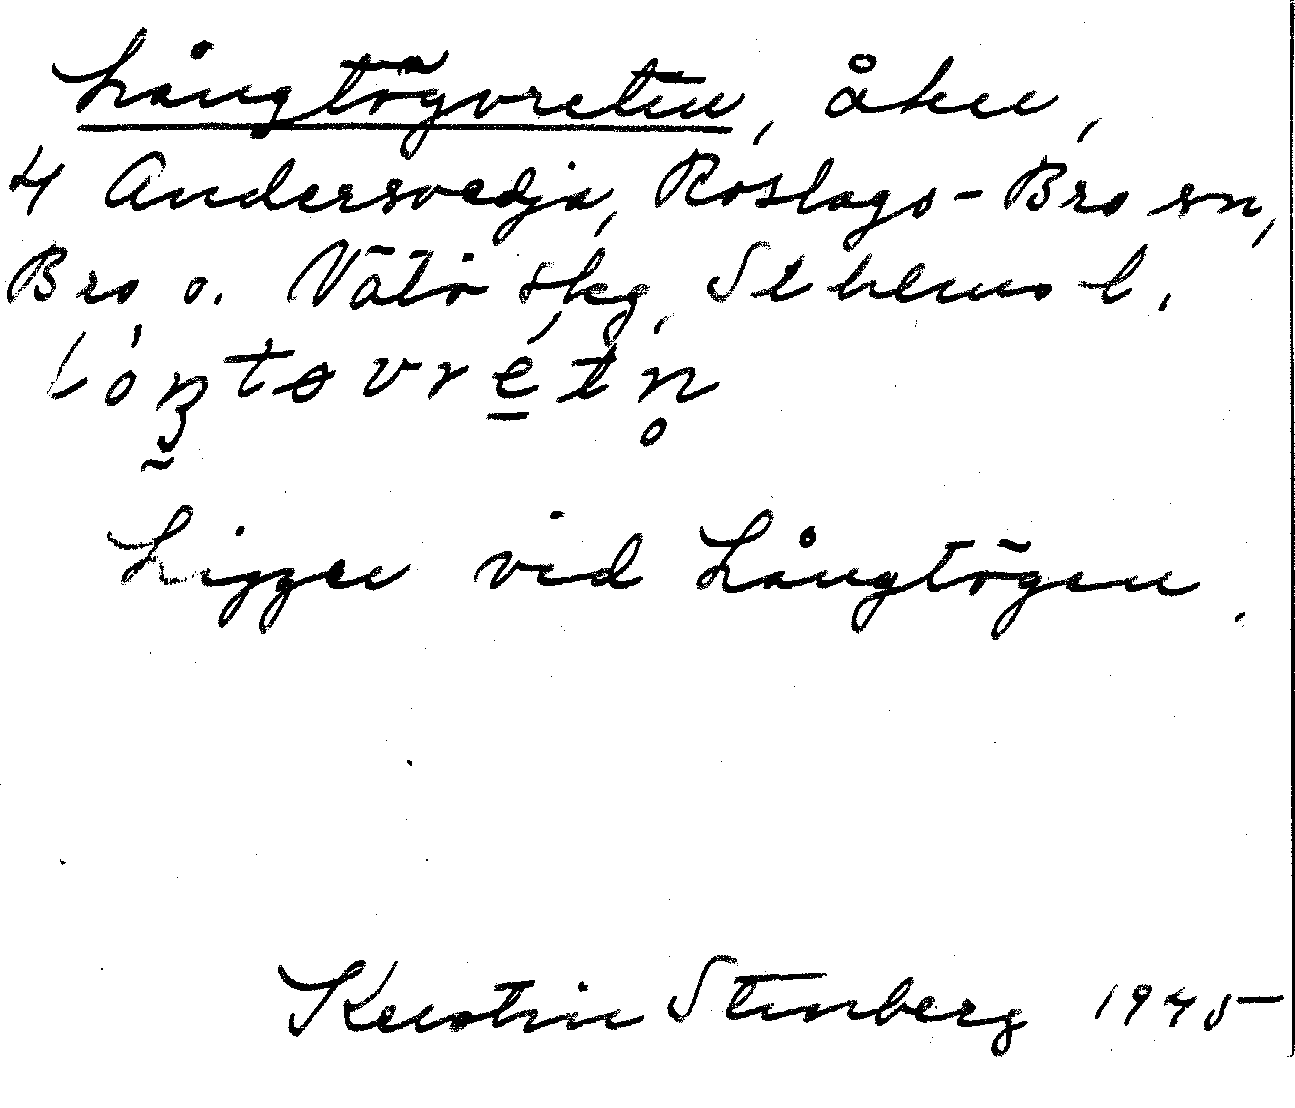 Långtögvreten, åker,
4 Andersvedja, Roslags-Bro sn,
Bro o. Vätö skg, Sthlms l.
Ligger vid Långtögen.
Kerstin Stenberg 1945